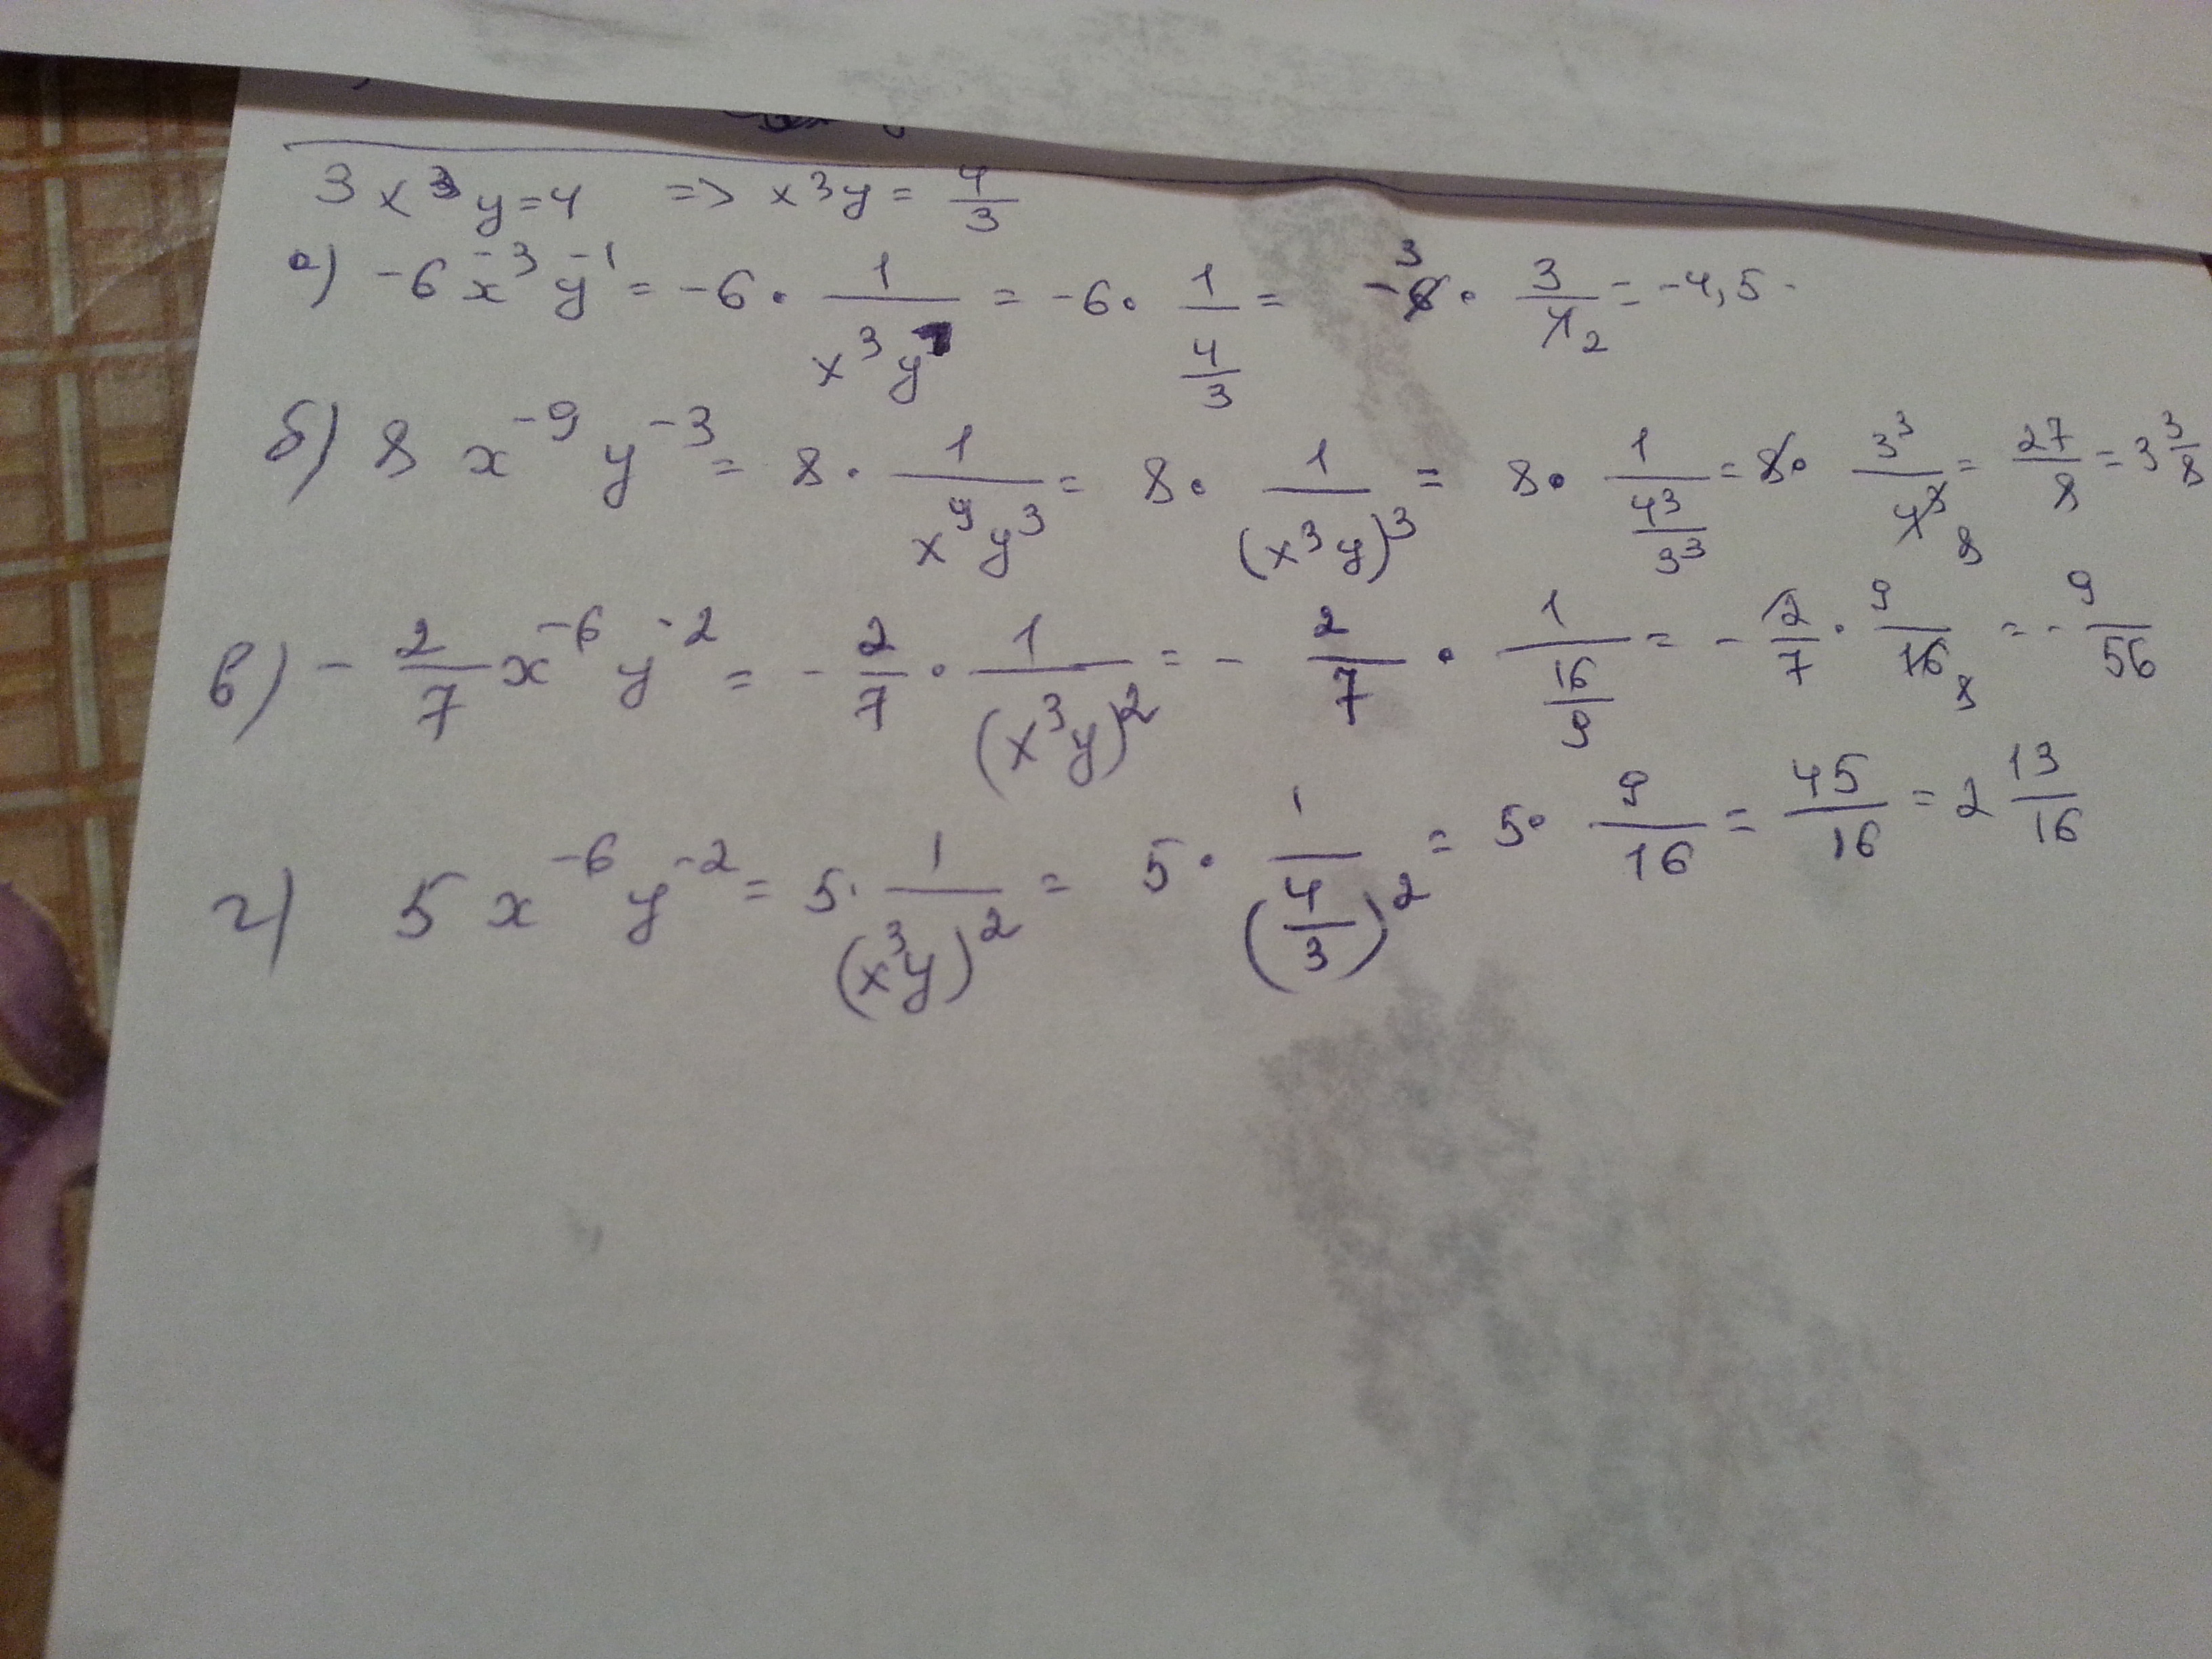 3x³y=4 => x³y = 4/3
а) -6x⁻³y⁻¹ = -6 · 1/(x³y) = -6 · 1/(4/3) = -6 3 · 3/4 2 = -4,5
б) 8x⁻⁹y⁻³ = 8 · 1/(x⁹y³) = 8 · 1/(x³y)³ = 8 · 1/(4³/3³) = 8 · 3³/4³ 8 = 27/8 = 3 3/8
в) - 2/7 x⁻⁶y⁻² = - 2/7 · 1/(x³y)² = - 2/7 · 1/(16/9) = - 2/7 · 9/16 8 = - 9/56
г) 5x⁻⁶y⁻² = 5 · 1/(x³y)² = 5 · 1/(4/3)² = 5 · 9/16 = 45/16 = 2 13/16